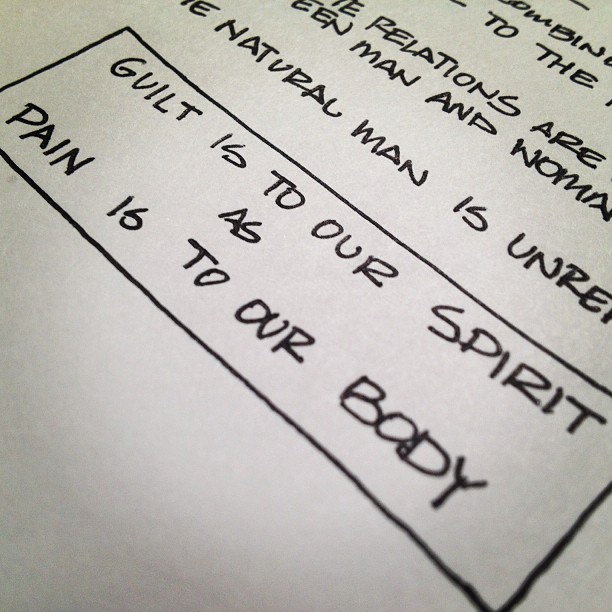 COMBIN
TO THE
RELATIONS ARE
EEN MAN AND WOMA
E NATURAL MAN IS UNRE
GUILT IS TO OUR SPIRIT
AS
PAIN IS TO OUR BODY